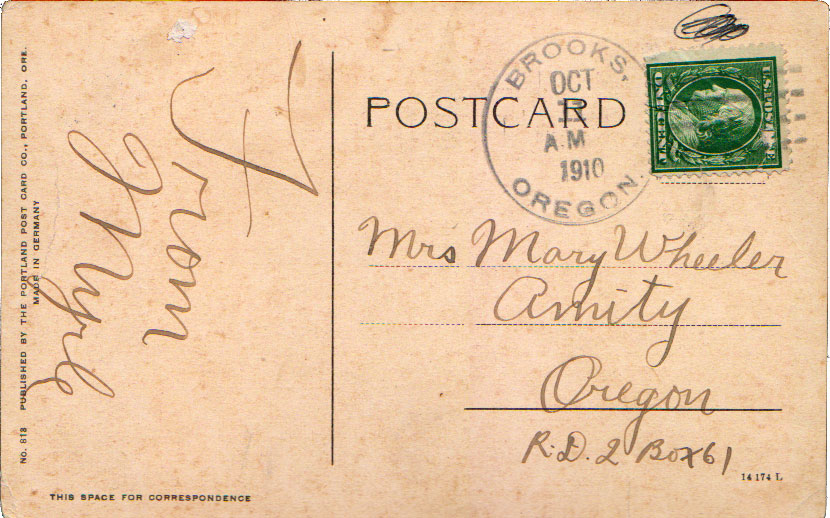 No. 818 PUBLISHED BY THE PORTLAND POST CARD CO., PORTLAND, ORE.
MADE IN GERMANY
From
Myrle
THIS SPACE FOR CORRESPONDENCE
POSTCARD
BROOKS,
OCT
11
A.M
1910
OREGON.
U.S.POSTAGE
ONE CENT
Mrs Mary Wheeler
Amity
Oregon
R.D. 2 Box 61
14 174 L